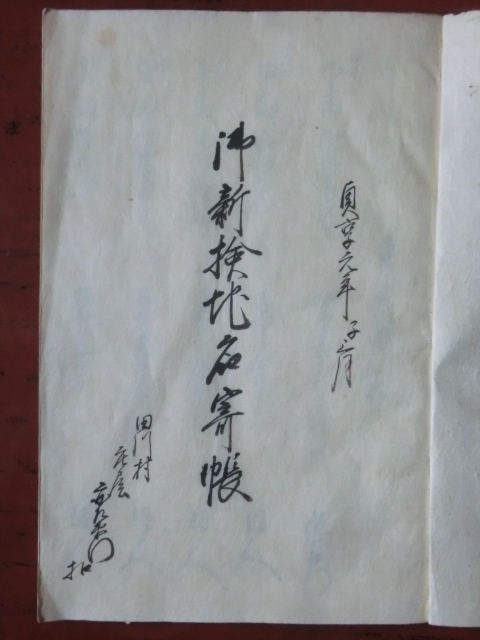 貞享元年子ノ月
御新検地名寄帳
田川村
庄屋
衛門
扣